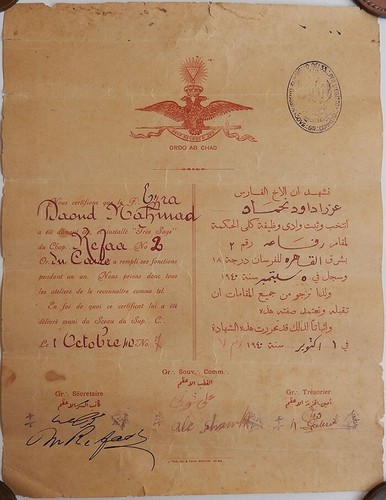 ORDO AB CHAO
Nous certifions que le F. Ezra
Daoud Nahmad
a été dûment élu et installé "Très Sage"
du Chap. Refaa No 2
Or. Du Caire a rempli ses fonctions
pendant un an. Nous prions donc tous
les ateliers de le reconnaître comme tel.
En foi de quoi ce certificat lui a été
délivré muni du Sceau du Sup. C.
Le 1 Octobre 40 No
نشهد ان الاخ الفارس
عزرا داود نحماد
انتخب وثبت وادى وظيفة كلى الحكمة
لمقام رفاعه رقم ٢
بشرق القاهره للفرسان درجة ١٨
وسجل في ٥ سبتمبر سنة ١٩٤٠
ولذا نرجو من جميع المقامات ان
تقبله وتعتمد صفته هذه
واثباتا لذلك قد تحررت هذه الشهادة
في ١ اكتوبر سنة ١٩٤٠
Gr∴ Souv∴ Comm∴
القطب الاعظم
علي شوقي
Aly Shawki
Gr∴ Sécretaire
كاتب السر الاعظم
Gr∴ Trésorier
امين الخزينة الاعظم